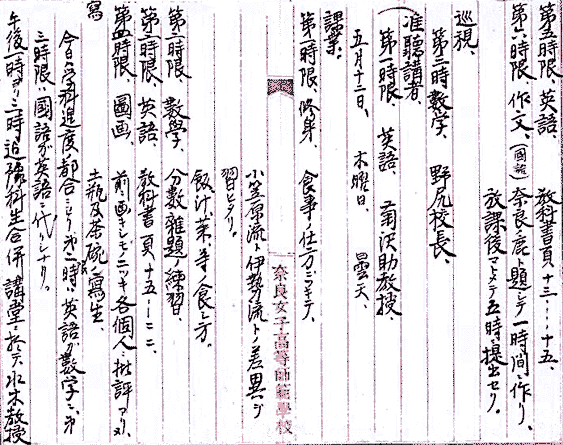 第五時限、英語、 教科書頁十三……十五、
第六時限、作文、(国語) 奈良ノ鹿ト題シテ一時間ニ作リ、
放課後マトメテ五時ニ提出セリ。
巡視、
第三時 数学、 野尻校長、
准聴講者、
第一時限 英語 助教授、
五月十三日、 木曜日、 曇天、
課業、
第一時限、修身、 食事ノ仕方ニツキテ、
小笠原流ト伊勢流トノ差異ヲ
習ヒタリ。
飯、汁、菜、等ノ食シ方。
奈良女子高等師範學校
第二時限 数学、 分数雑題ノ練習、
第三時限、英語、 教科書頁十五……二二、
第四時限 圖画、 前画キシモノニツキ各個人ニ批評アリ、又、
土瓶及茶碗ノ寫生、
寫
今日ハ学科進度ノ都合ニヨリ第二時ハ英語ガ数学ニ、第
三時限ハ國語ガ英語ニ代リシナリ。
午後一時ヨリ二時迄豫科生合併講堂ニ於テ水木教授